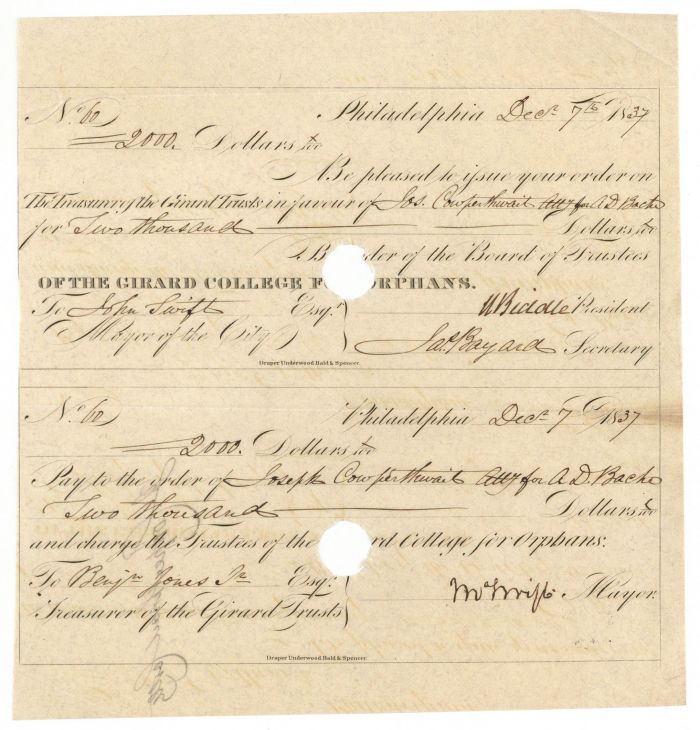 No. 60 Philadelphia Decr. 7th 1837
2000. Dollars
Be pleased to issue your order on
The Treasurer of the Girard Trusts in favour of Jos. Cowperthwait Atty for A D Bache
for Two thousand Dollars
By order of the Board of Trustees
OF THE GIRARD COLLEGE FOR ORPHANS.
To John Swift Esqr. N Biddle President
Mayor of the City Jas. Bayard Secretary
Draper Underwood Bald & Spencer.
No. 60 Philadelphia Decr. 7th 1837
2000. Dollars
Pay to the order of Joseph Cowperthwait Atty for A. D. Bache
Two thousand Dollars
and charge the Trustees of the Girard College for Orphans.
To Benjn Jones Jr Esqr. Mayor.
Treasurer of the Girard Trusts
Draper Underwood Bald & Spencer.